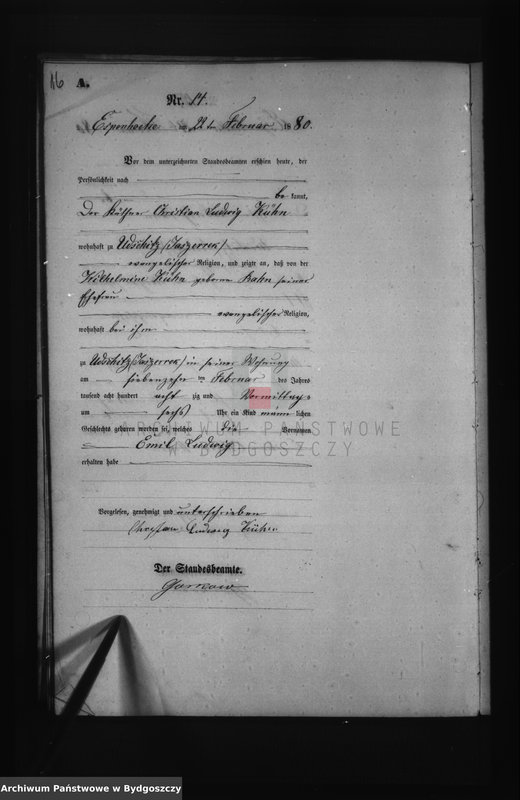 16
A.
Nr. 14.
Espenhecke am 22 ten Februar 1880.
Vor dem unterzeichneten Standesbeamten erschien heute, der
Persönlichkeit nach
be kannt,
Der Käthner Christian Ludwig Kühn
wohnhaft zu Udschitz (Jaszerrek)
evangelischer Religion, und zeigte an, daß von der
Wilhelmine Kühn geborne Rahn seiner
Ehefrau
evangelischer Religion,
wohnhaft bei ihm
zu Udschitz (Jaszerrek) in seiner Wohnung
am siebenzehn ten Februar des Jahres
tausend acht hundert acht zig und Vormittags
um sechs Uhr ein Kind männ lichen
Geschlechts geboren worden sei, welches die Vornamen
Emil Ludwig
erhalten habe
Vorgelesen, genehmigt und unterschrieben
Christian Ludwig Kühn
Der Standesbeamte.
ARCHIWUM PAŃSTWOWE
W BYDGOSZCZY
Archiwum Państwowe w Bydgoszczy